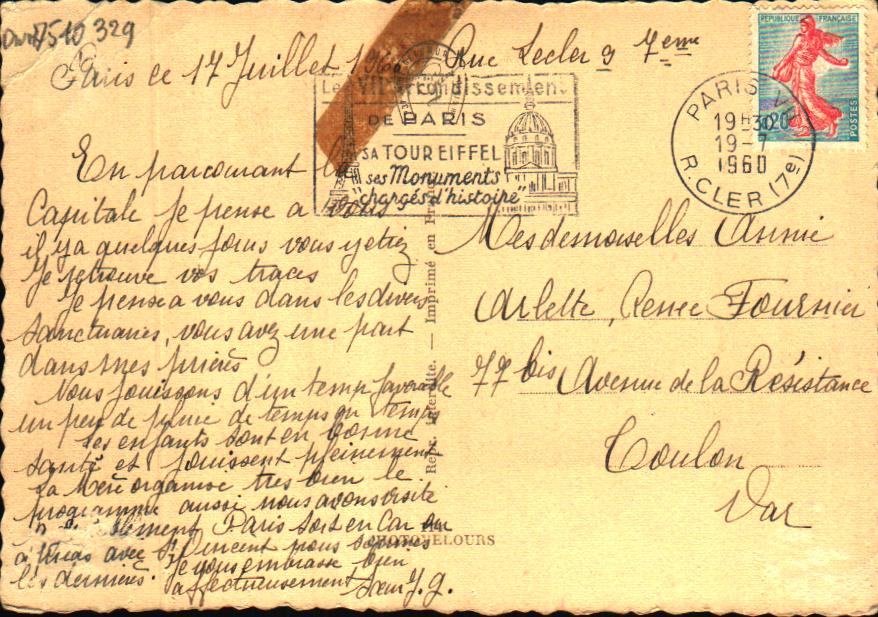 7510 329
Paris ce 17 Juillet 1960 Rue Lecler 9 7eme
Le VIIe Arrondissement
DE PARIS
SA TOUR EIFFEL
ses Monuments
"chargés d'histoire"
REPUBLIQUE FRANÇAISE
0,20
POSTES
PARIS V
19H30
19-7
1960
R. CLER (7e)
En parcourant la
Capitale je pense a vous
il y a quelques jours vous y etiez
Je retrouve vos traces
je pense a vous dans les divers
sanctuaires, vous avez une part
dans mes prieres
Nous jouissons d'un temps favorable
un peu de pluie de temps en temps
Les enfants sont en bonne
santé et jouissent pleinement
La Mere organise tres bien le
programme aussi nous avons visité
Paris soit en Car ou
avec St Vincent nous sommes
les dernieres. Je vous embrasse bien
affectueusement Soeur J. G.
Repr. interdite. — Imprimé en France
PHOTOVELOURS
Mesdemoiselles Annie
Arlette, Renee Fournier
77 bis Avenue de la Résistance
Toulon
Var